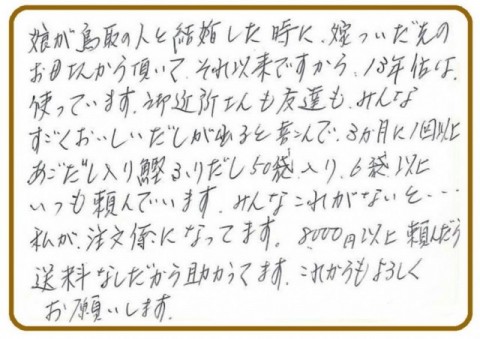 娘が鳥取の人と結婚した時に、嫁ついだ先の
お母さんから頂いて、それ以来ですから、13年位は、
使っています。御近所さんも友達も、みんな
すごくおいしいだしが出ると喜こんで、3か月に1回以上
あごだし入り鰹ふりだし50袋入り、6袋以上
いつも頼んでいます。みんなこれがないと・・・
私が、注文係になってます。8000円以上頼んだら
送料なしだから助かってます。これからもよろしく
お願いします。